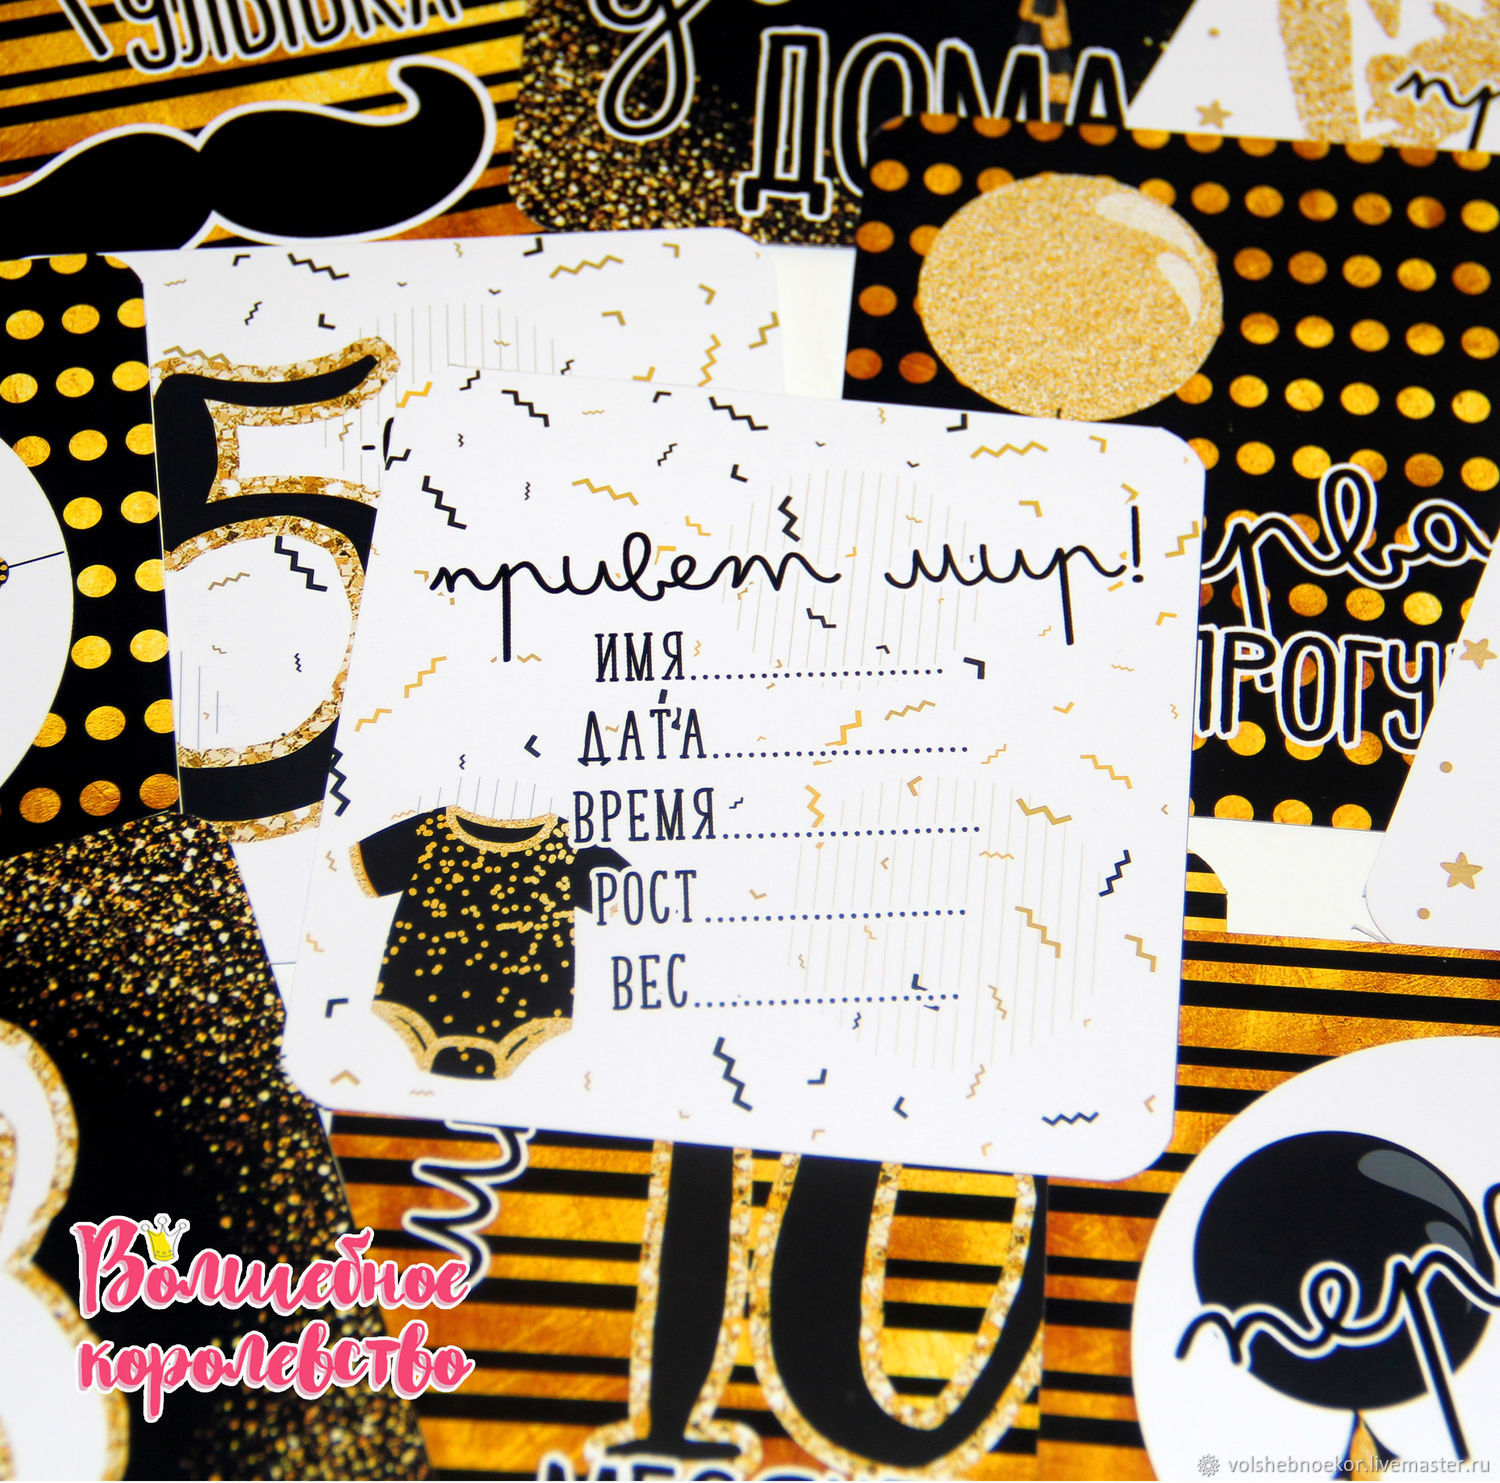 ДОМА
5
привет мир!
ИМЯ
ДАТА
ВРЕМЯ
РОСТ
ВЕС
10
Волшебное
королевство
volshebnuekor.livemaster.ru